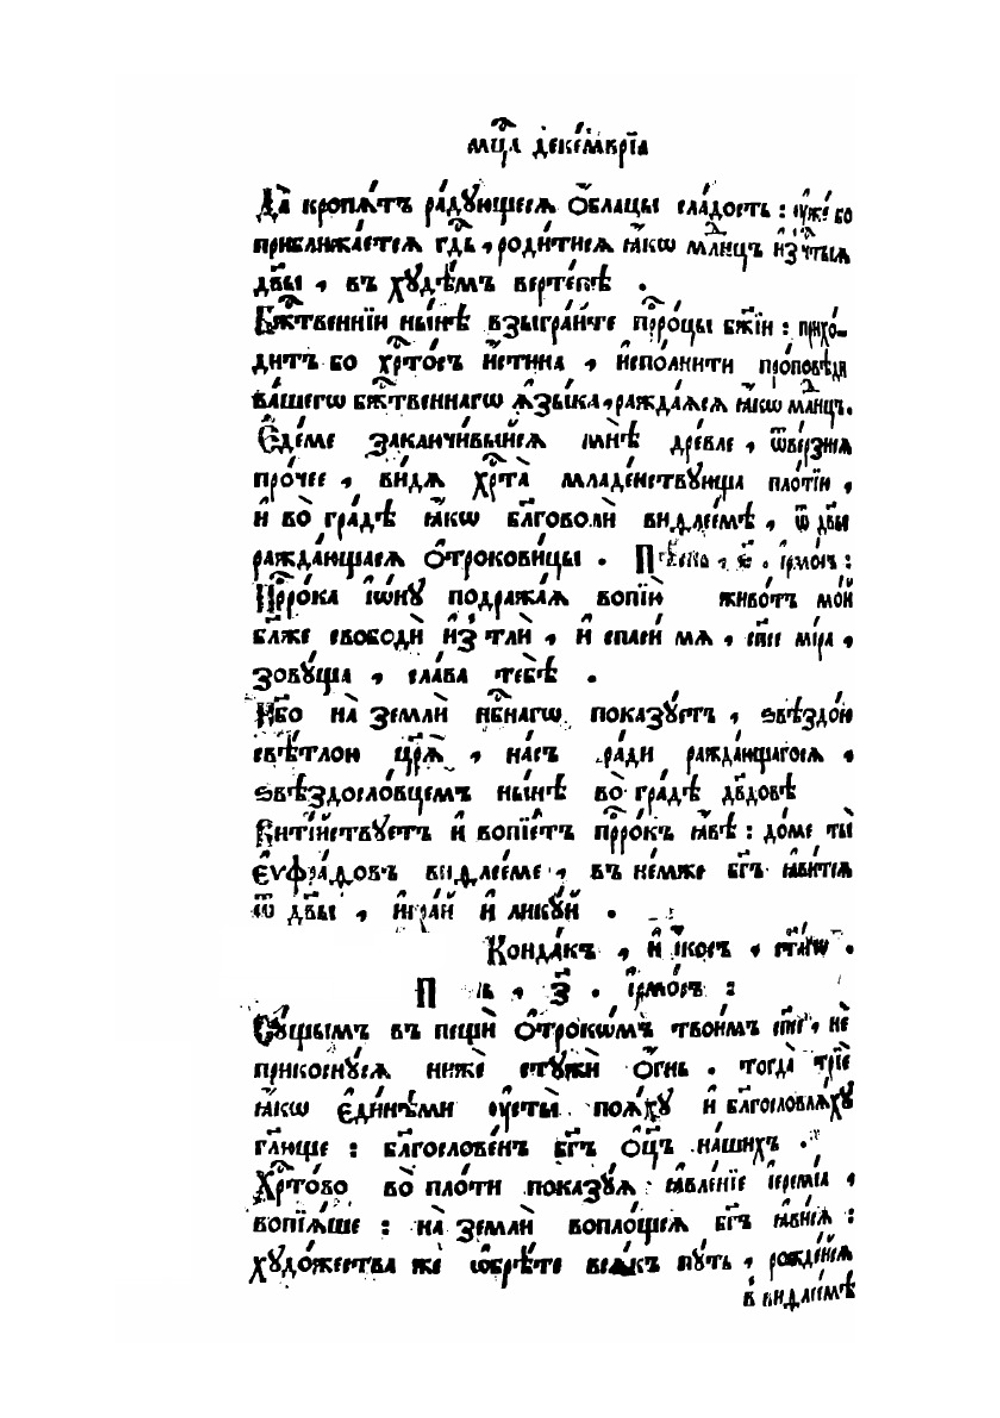 мц҃а деке́мврїа
Да̀ кропѧ́тъ ра́дꙋющесѧ ѻ҆́блацы сла́дость : ᲂу҆же́ бо
приближа́етсѧ гдⷭ҇ь , роди́тисѧ ꙗ҆́кѡ младⷣнцъ и҆з̾ чⷭ҇тыѧ
дв҃ы , въ хꙋдѣ́мъ верте́пѣ .
Бжⷭ҇твеннїи ны́нѣ взыгра́йте прⷪ҇ро́цы бж҃їи : прихо́-
дитъ бо хрⷭ҇то́съ и҆́стина , и҆спо́лнити про́повѣди
ва́шегѡ бжⷭ҇твеннагѡ ѧ҆зы́ка , ражда́ѧсѧ ꙗ҆́кѡ младⷣнцъ .
Є҆де́ме заключи́выйсѧ мнѣ̀ дре́вле , ѿве́рзисѧ
про́чее , ви́дѧ хрⷭ҇та̀ младе́нствꙋюща пло́тїю ,
и҆ во̀ гра́дѣ ꙗ҆́кѡ бл҃говолѝ виѳлее́мѣ , ѿ дв҃ы
ражда́ющасѧ ѻ҆трокови́цы . Пѣ́снь , ѕ҃ . і҆рмо́съ :
Прⷪ҇ро́ка і҆ѡ́нꙋ подража́ѧ вопїю̀ живо́тъ мо́й
бл҃же свободѝ и҆з̾ тлѝ , и҆ спасѝ мѧ , сп҃се мі́ра ,
зовꙋ́ща , сла́ва тебѣ̀ .
Нб҃о на̀ землѝ нбⷭ҇наго показꙋ́етъ , ѕвѣздо́ю
свѣ́тлою цр҃ѧ̀ , на́съ ра́ди ражда́ющагосѧ ,
ѕвѣздосло́вцемъ ны́нѣ во̀ гра́дѣ дв҃довѣ
Вити́йствꙋетъ и҆ вопїе́тъ прⷪ҇ро́къ ꙗ҆́вѣ : до́ме ты̀
є҆ѵфра́ѳовъ виѳлее́ме , въ не́мже бг҃ъ ꙗ҆ви́тсѧ
ѿ дв҃ы , и҆гра́й и҆ ликꙋ́й .
Конда́къ , и҆ і҆́косъ , ст҃а́гѡ .
П нь , з҃ . і҆рмо́съ :
Сꙋ́щымъ въ пещѝ ѻ҆трокѡ́мъ твои́мъ сп҃се , нѐ
прикоснꙋ́сѧ нижѐ стꙋжѝ ѻ҆́гнь . тогда̀ трїѐ
ꙗ҆́кѡ є҆ди́нѣми ᲂу҆сты̀ поѧ́хꙋ и҆ бл҃гословлѧ́хꙋ
гл҃юще : бл҃гослове́нъ бг҃ъ ѻ҆ц҃ъ на́шихъ .
Хрⷭ҇то́во во̀ пло́ти показꙋ́ѧ ꙗ҆вле́нїе і҆еремі́а ,
вопїѧ́ше : на̀ землѝ вопло́щсѧ бг҃ъ ꙗ҆ви́сѧ :
хꙋдо́жества же ѡ҆брѣ́те всѧ́къ пꙋ́ть , рожде́йсѧ
в виѳлее́мѣ